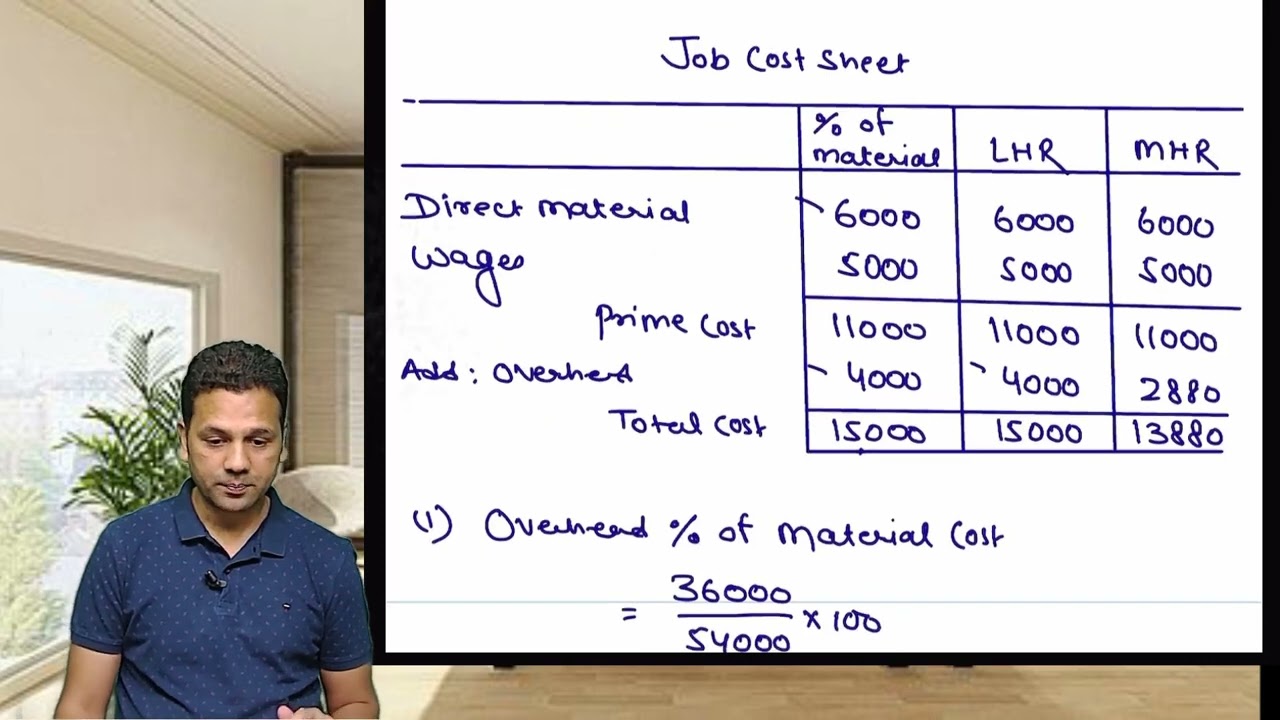 Job Cost Sheet
% of material LHR MHR
Direct material 6000 6000 6000
Wages 5000 5000 5000
Prime Cost 11000 11000 11000
Add: Overhead 4000 4000 2880
Total Cost 15000 15000 13880
(1) Overhead % of Material Cost
= 36000
54000 × 100